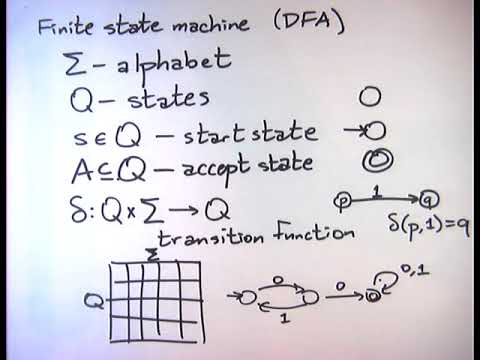 Finite state machine (DFA)
Σ – alphabet
Q – states
s ∈ Q – start state
A ⊆ Q – accept state
δ: Q × Σ → Q
p 1 q
δ(p,1)=q
transition function
Σ
Q
0 0 0,1
1